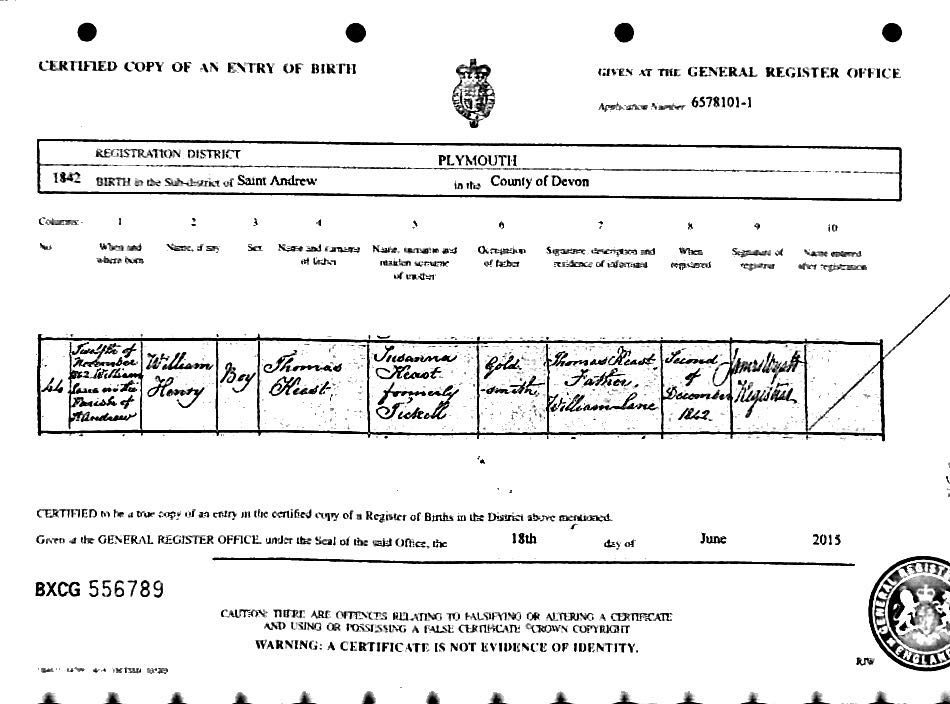 CERTIFIED COPY OF AN ENTRY OF BIRTH
GIVEN AT THE GENERAL REGISTER OFFICE
Application Number 6578101-1
REGISTRATION DISTRICT PLYMOUTH
1842 BIRTH in the Sub-district of Saint Andrew in the County of Devon
Columns:- 1 2 3 4 5 6 7 8 9 10
No When and Name, if any Sex Name and surname Name, surname and Occupation Signature, description and When Signature of Name entered
where born of father maiden surname of father residence of informant registered registrar after registration
of mother
44
Twelfth of
November
1842 William
Lane in the
Parish of
St Andrew
William
Henry
Boy
Thomas
Keast
Susanna
Keast
formerly
Tickell
Gold
-smith
Thomas Keast
Father,
William-Lane
Second
of
December
1842
James
Registrar
CERTIFIED to be a true copy of an entry in the certified copy of a Register of Births in the District above mentioned.
Given at the GENERAL REGISTER OFFICE, under the Seal of the said Office, the 18th day of June 2015
BXCG 556789
CAUTION: THERE ARE OFFENCES RELATING TO FALSIFYING OR ALTERING A CERTIFICATE
AND USING OR POSSESSING A FALSE CERTIFICATE ©CROWN COPYRIGHT
WARNING: A CERTIFICATE IS NOT EVIDENCE OF IDENTITY.
GENERAL REGIST
ENGLAND
RJW